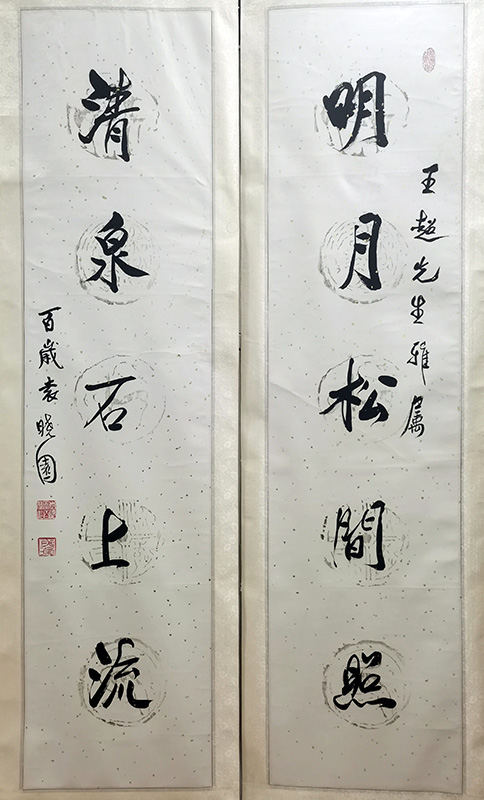 王超先生雅属
明月松間照
清泉石上流
百歲袁晓園